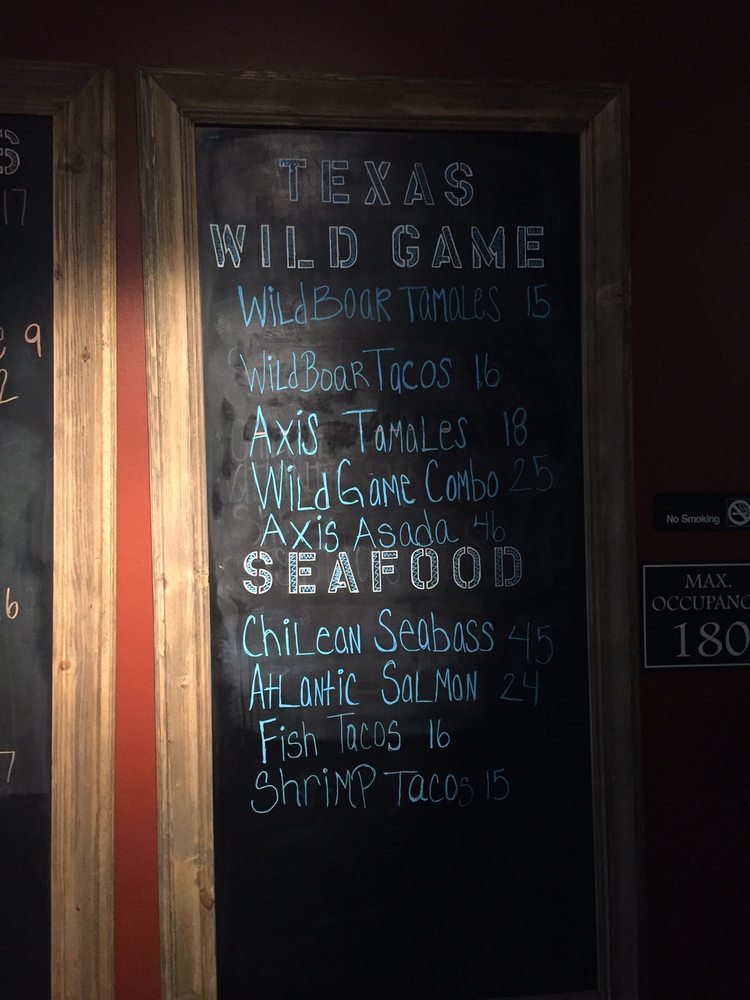 TEXAS
WILD GAME
WildBoar Tamales 15
WildBoar Tacos 16
Axis Tamales 18
Wild Game Combo 25
Axis Asada 46
SEAFOOD
Chilean Seabass 45
Atlantic Salmon 24
Fish Tacos 16
Shrimp Tacos 15
S
17
9
2
6
7
No Smoking
MAX.
180